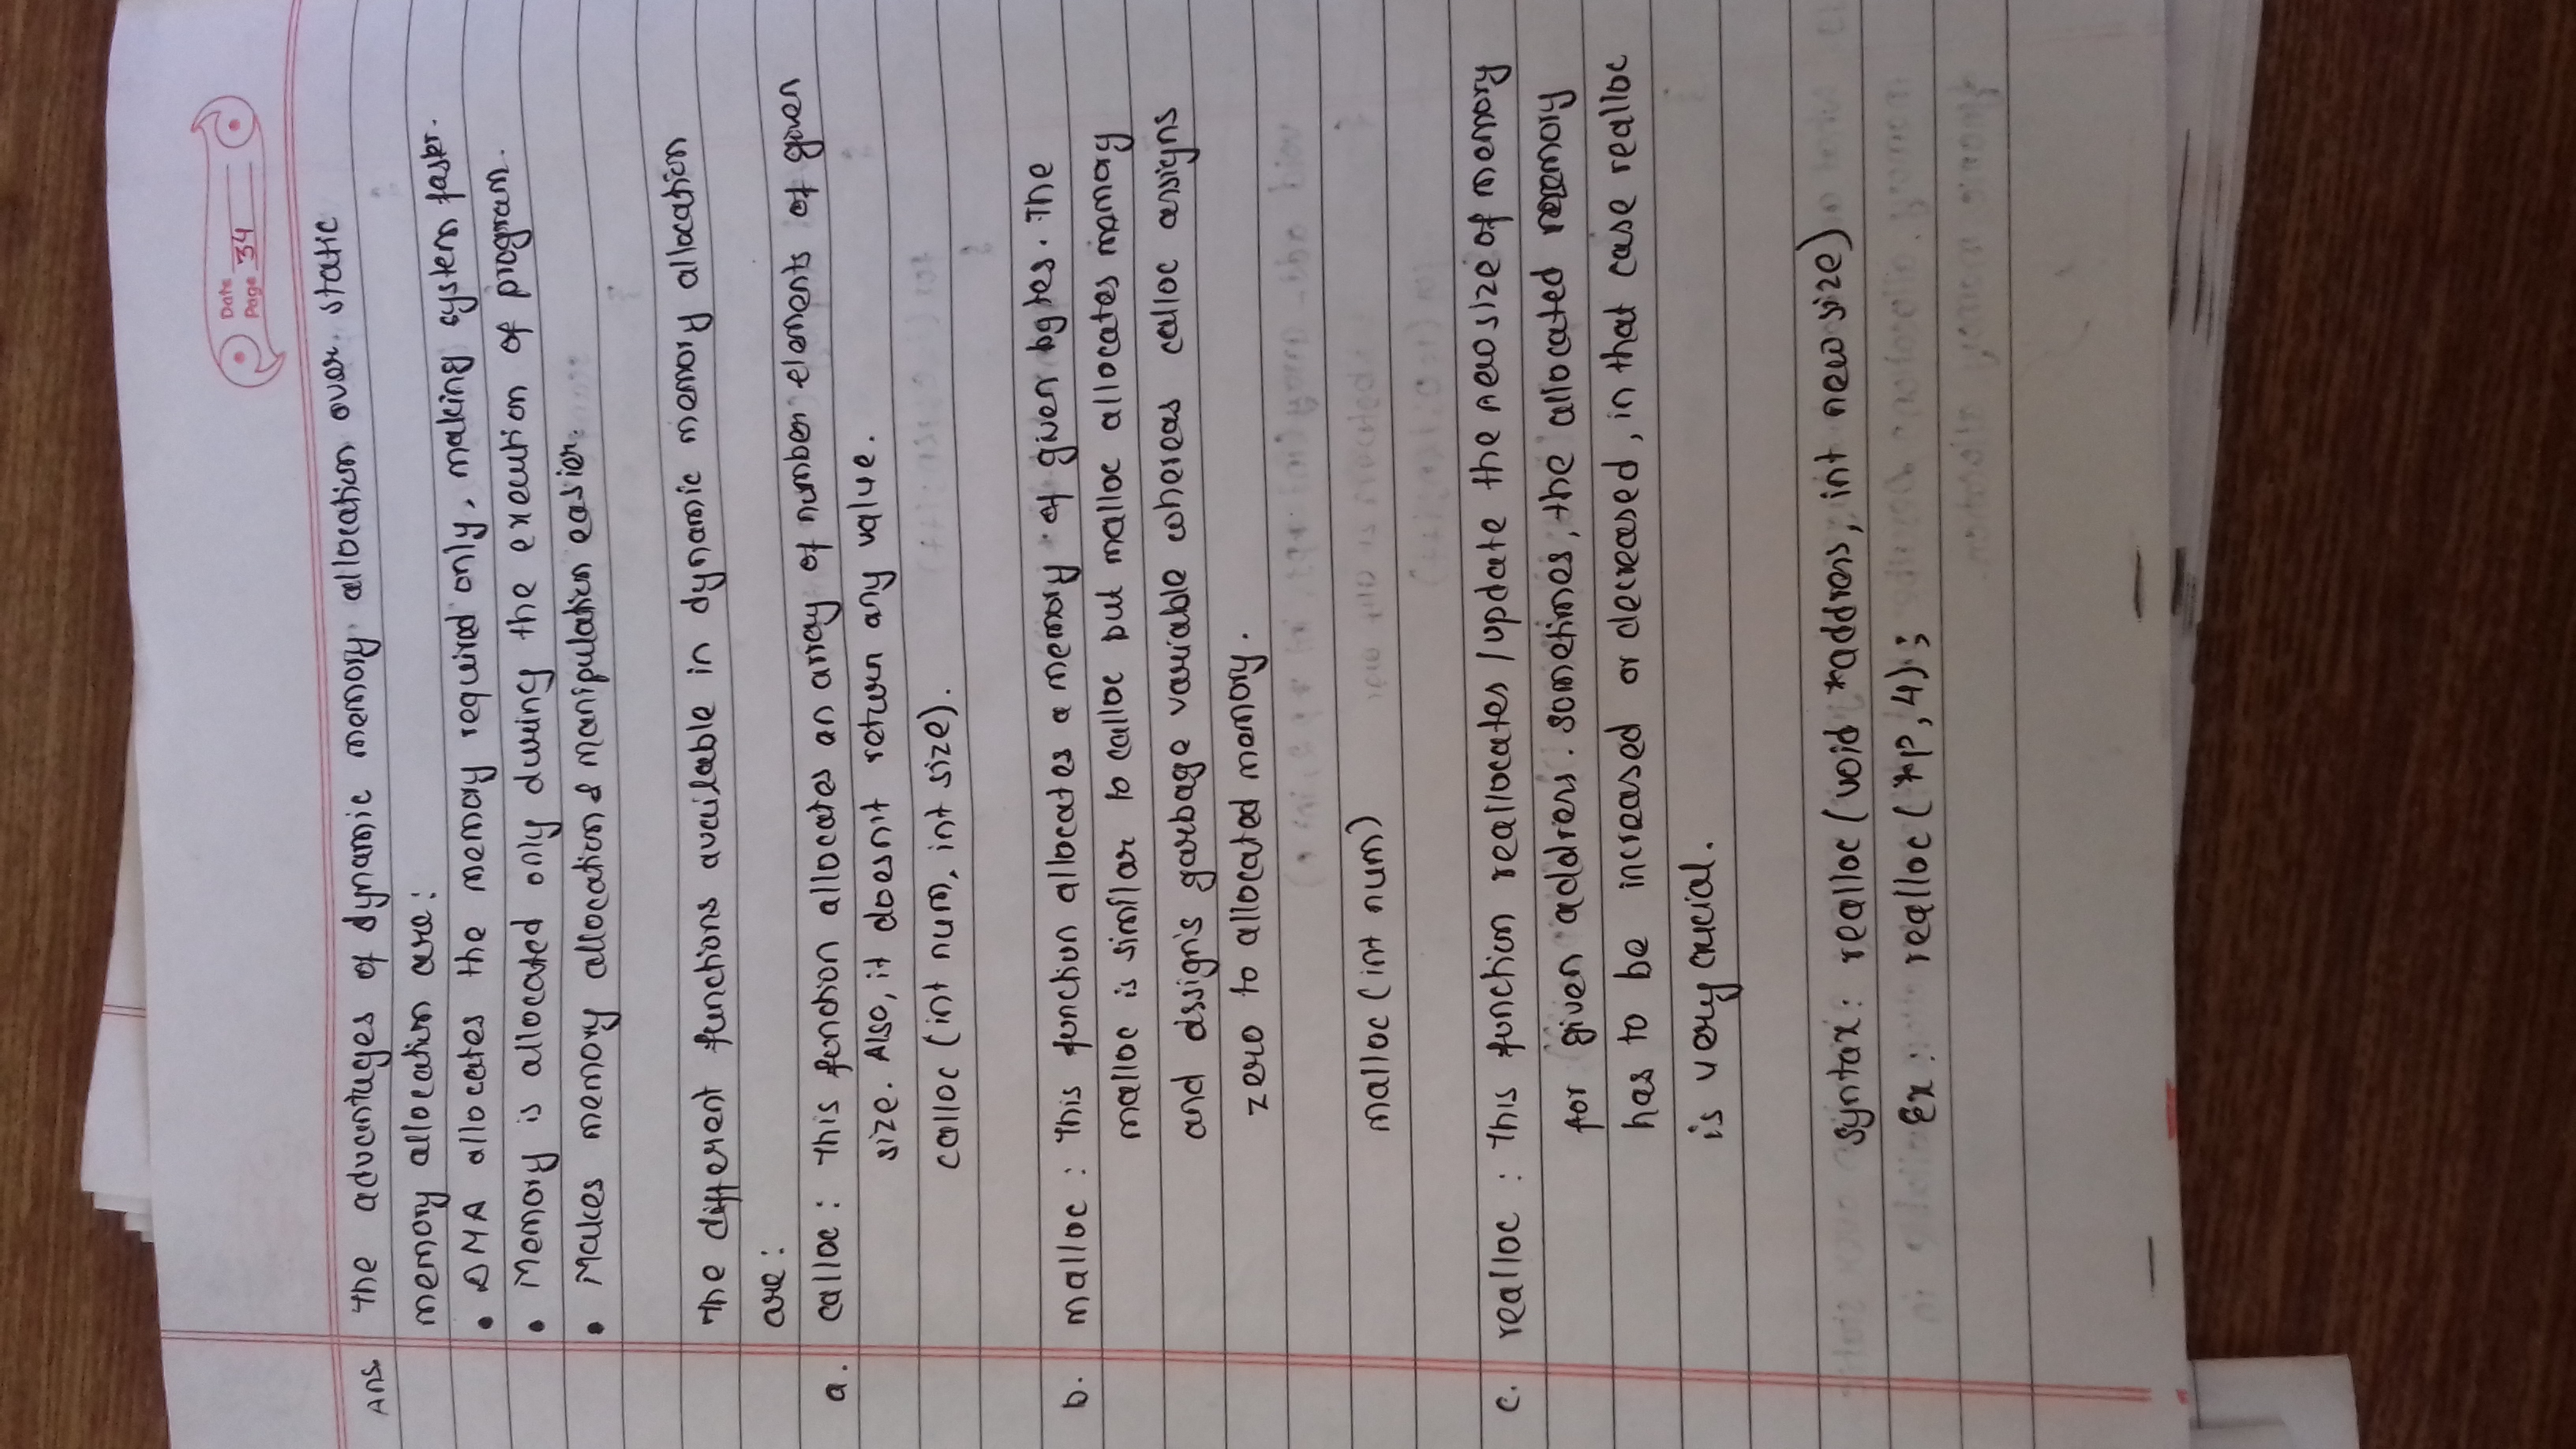 Date
Page 34
Ans. The advantages of dynamic memory allocation over static
memory allocation are:
• DMA allocates the memory required only, making system faster.
• Memory is allocated only during the execution of program.
• Makes memory allocation & manipulation easier.
The different functions available in dynamic memory allocation
are:
a. calloc: This function allocates an array of number elements of given
size. Also, it doesn't return any value.
calloc (int num, int size).
b. malloc: This function allocates a memory of given bytes. The
malloc is similar to calloc but malloc allocates memory
and assign's garbage variable whereas calloc assigns
zero to allocated memory.
malloc (int num)
c. realloc: This function reallocates / update the new size of memory
for given address. sometimes, the allocated memory
has to be increased or decreased, in that case realloc
is very crucial.
syntax: realloc (void *address, int new size)
Ex: realloc (*p, 4);